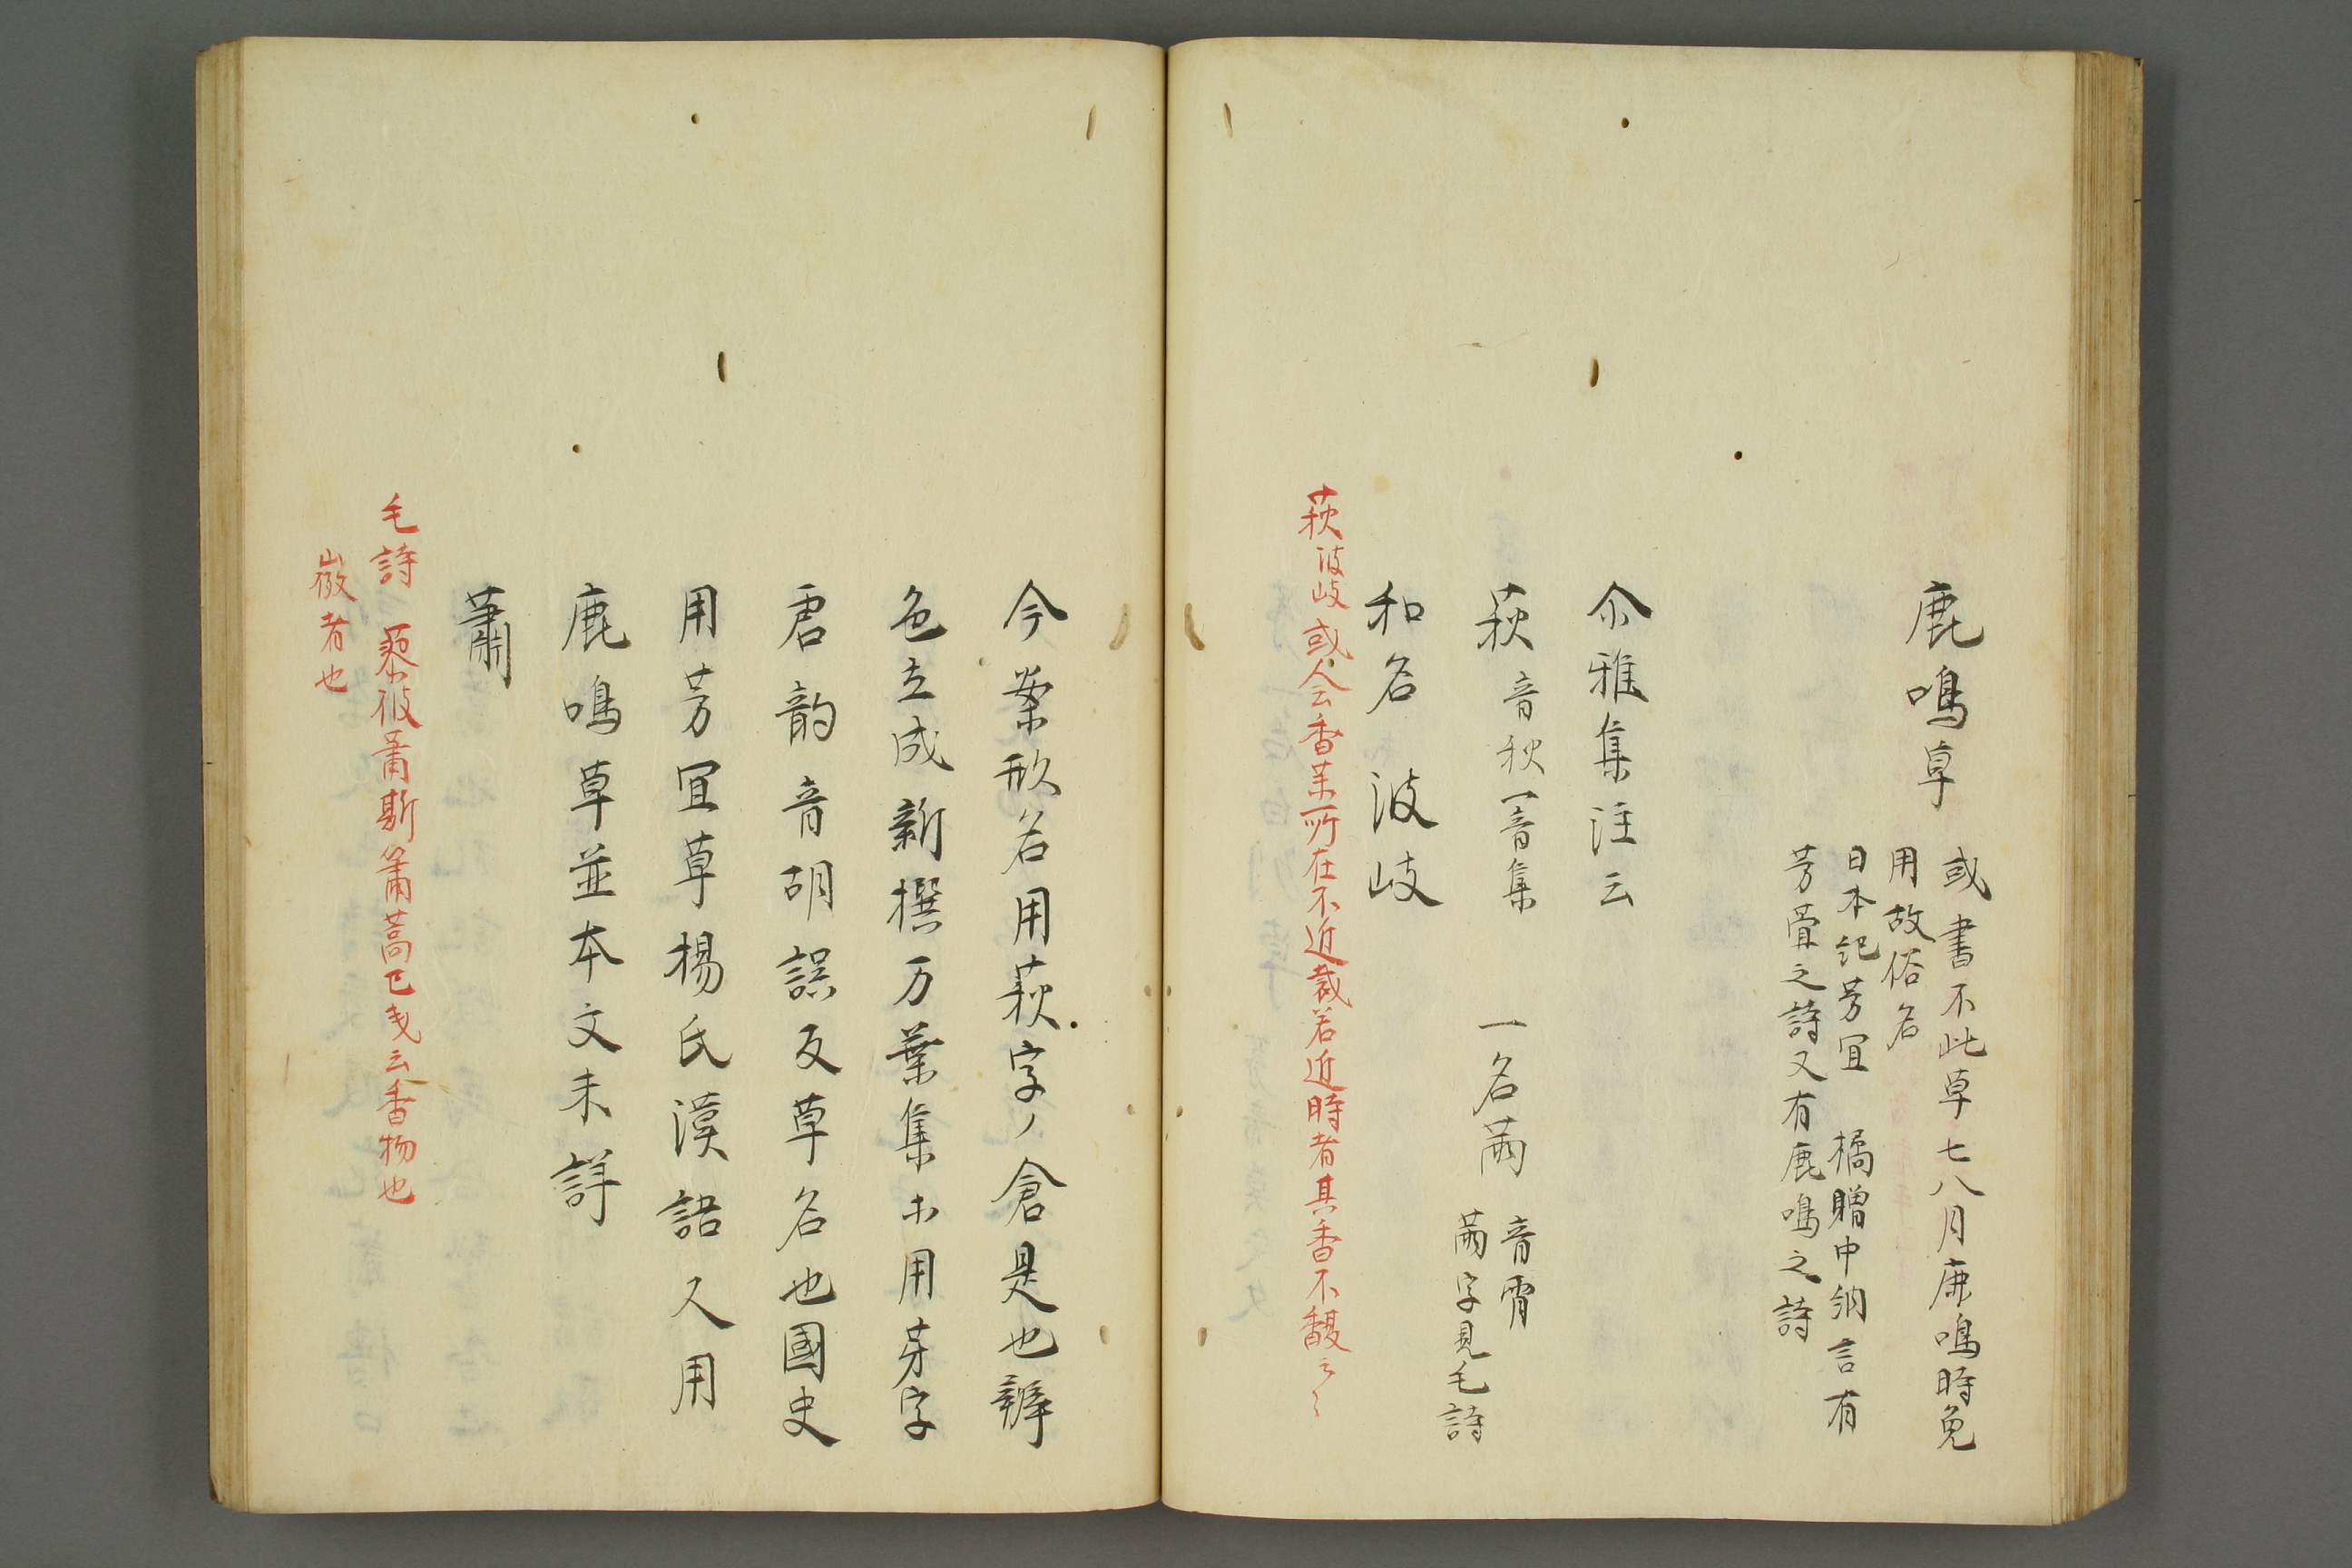 鹿鳴草
或書不此草七八月鹿鳴時免
用故俗名
日本記芳冝 橘贈中納言有
芳冝之詩又有鹿鳴之詩
尒雅集注云
萩 音秋一音集 一名蕭 音霄
蕭字見毛詩
和名 波岐
萩波岐或人云香茉所在不近裁若近時者其香不馥云〻
今案牧名用萩字ノ倉是也辨
色立成新撰万葉集木用芽字
君韵音胡誤反草名也國史
用芳冝草楊氏漢語又用
鹿鳴草並本文未詳
蕭
毛詩 彼蕭斯蕭蒿已支云香物也
徴者也